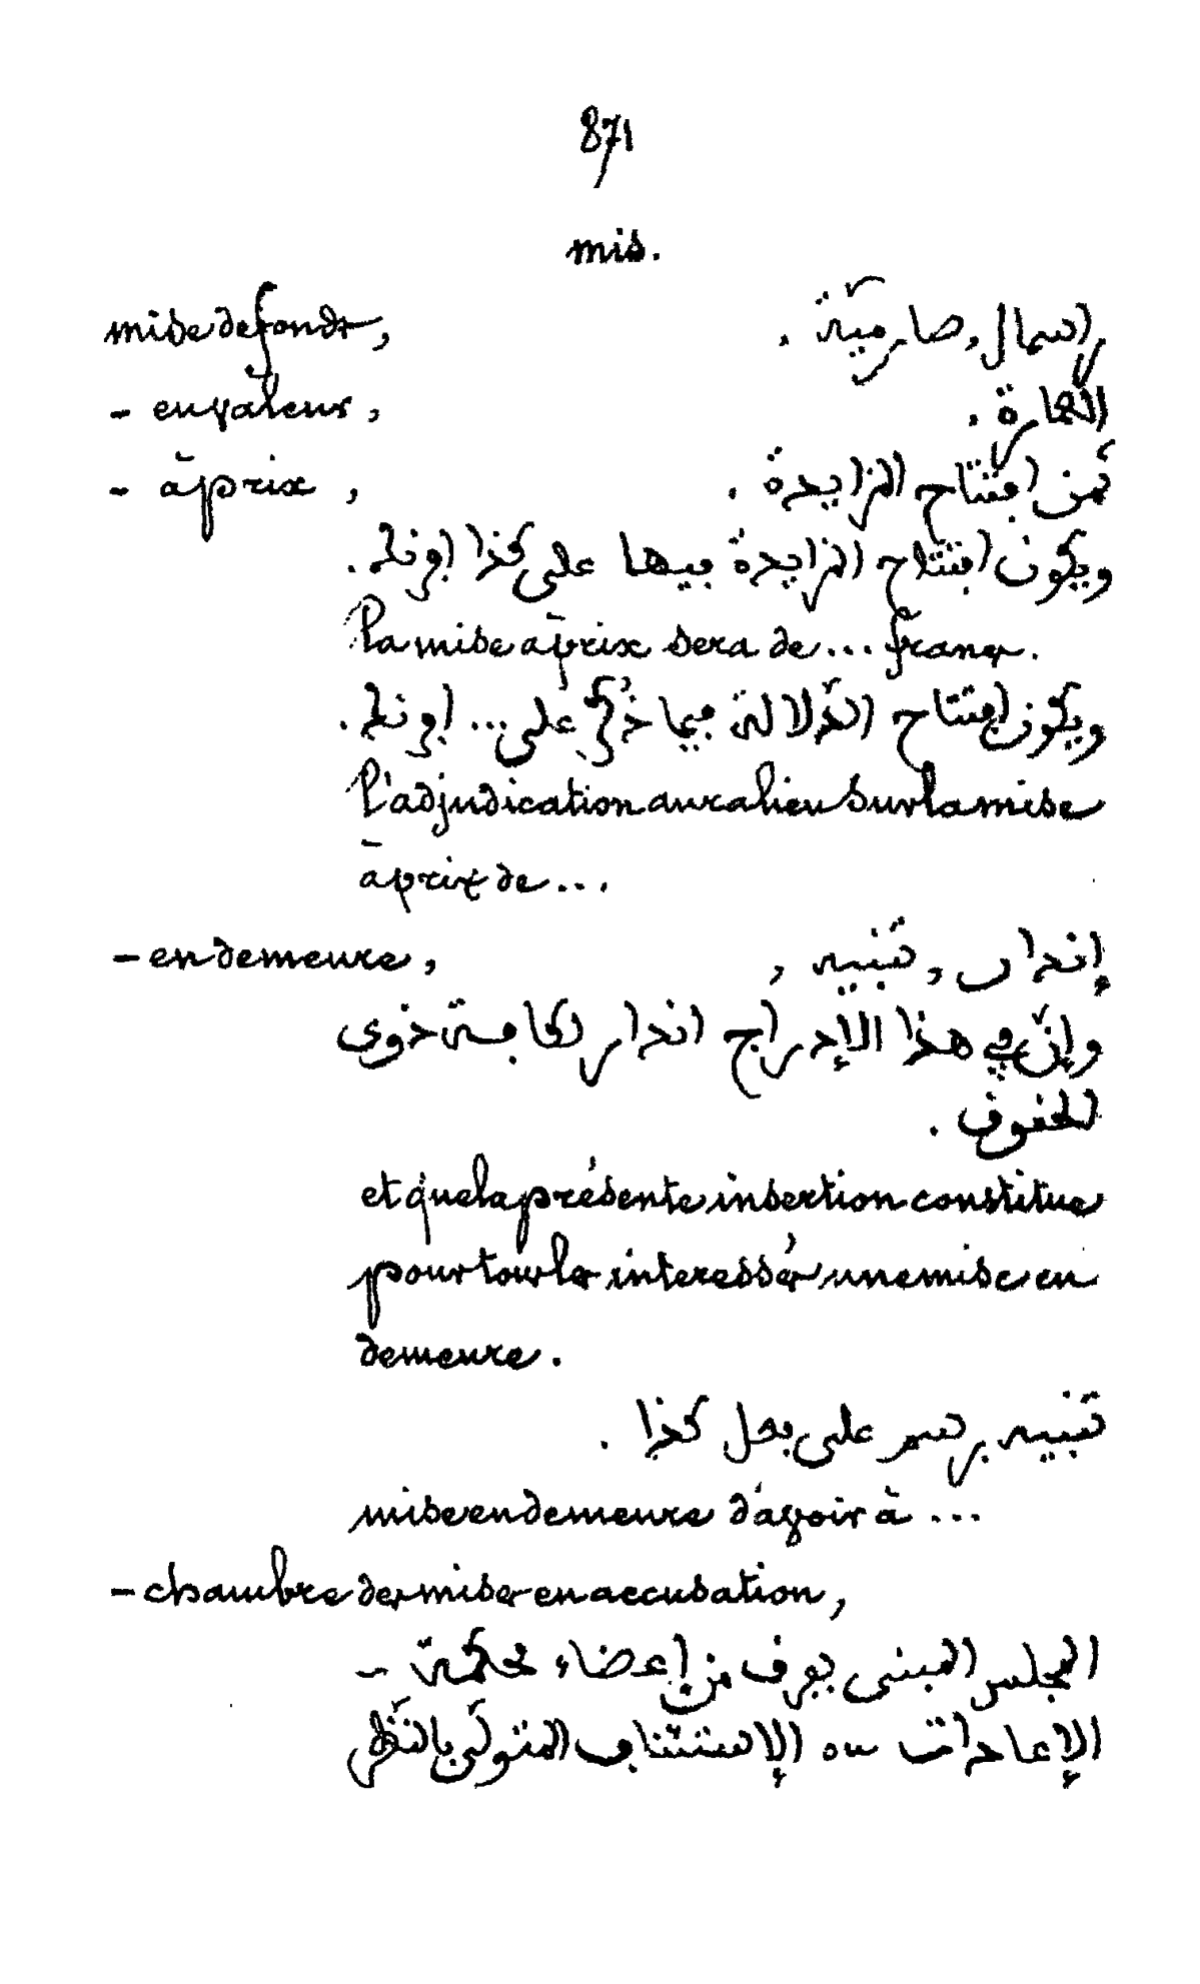 871
mis.
mise de fonds, راسمال, صارمية.
- en valeur, العمارة.
- à prix, ثمن افتتاح المزايدة.
ويكون افتتاح المزايدة فيها على كذا افرنك.
la mise à prix sera de... francs.
ويكون افتتاح الدلالة فيما ذكر على... افرنك.
l'adjudication aura lieu sur la mise
à prix de...
- en demeure, إنذار, تنبيه,
وإن في هذا الإدراج انذار لكافة ذوى
الحقوق.
et que la présente insertion constitue
pour tous les interessés une mise en
demeure.
تنبيه برسم على فعل كذا.
mise en demeure d'avoir à...
- chambre des mises en accusation,
المجلس المبنى بفرف من إعضاء محكمة -
الإعادات الإستئناف المتولى بالنظر